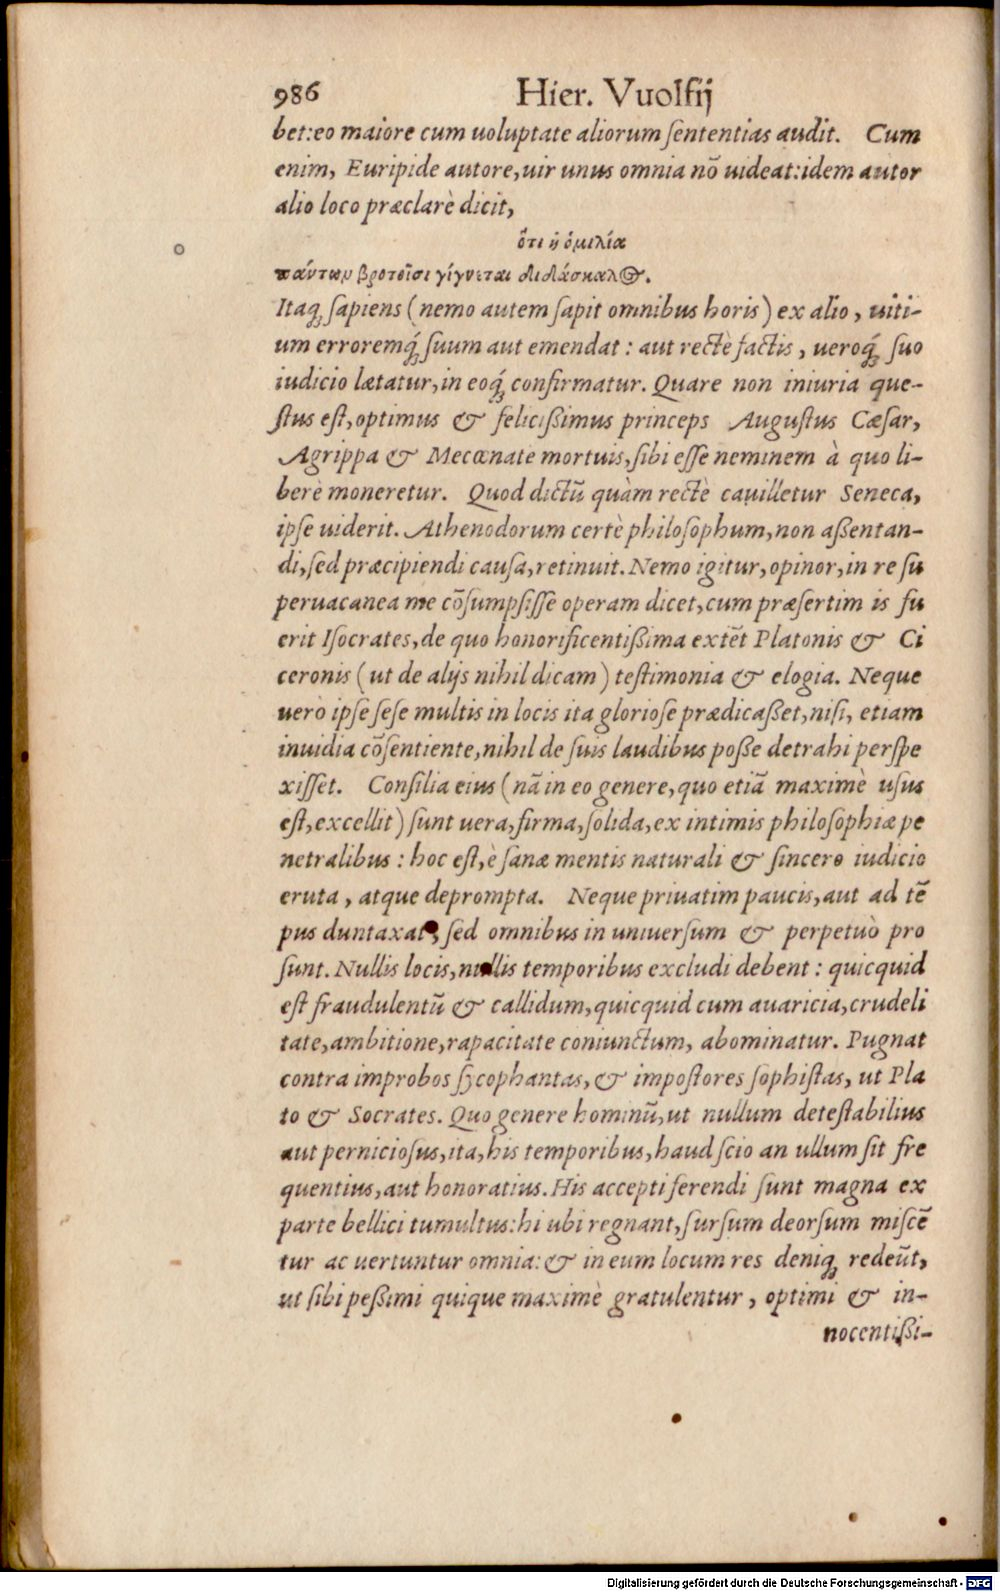 986 Hier. Vuolfij
bet: eo maiore cum uoluptate aliorum ſententias audit. Cum
enim, Euripide autore, uir unus omnia nō uideat: idem autor
alio loco præclarè dicit,
ὅτι ἡ ὁμιλία
πάντων βροτοῖσι γίγνεται διδάσκαλος.
Itaq́ꝫ ſapiens (nemo autem ſapit omnibus horis) ex alio, uiti-
um erroremq́ꝫ ſuum aut emendat: aut rectè factis, ueroq́ꝫ ſuo
iudicio lætatur, in eoq́ꝫ confirmatur. Quare non iniuria que-
ſtus eſt, optimus & feliciſſimus princeps Auguſtus Cæſar,
Agrippa & Mecœnate mortuis, ſibi eſſe neminem à quo li-
berè moneretur. Quod dictū quàm rectè cauilletur Seneca,
ipſe uiderit. Athenodorum certè philoſophum, non aßentan-
di, ſed præcipiendi cauſa, retinuit. Nemo igitur, opinor, in re ſu
peruacanea me cōſumpſiſſe operam dicet, cum præſertim is fu
erit Iſocrates, de quo honorificentißima extēt Platonis & Ci
ceronis (ut de alijs nihil dicam) teſtimonia & elogia. Neque
uerò ipſe ſeſe multis in locis ita glorioſe prædicaßet, niſi, etiam
inuidia cōſentiente, nihil de ſuis laudibus poße detrahi perſpe
xiſſet. Conſilia eius (nā in eo genere, quo etiā maximè uſus
eſt, excellit) ſunt uera, firma, ſolida, ex intimis philoſophiæ pe
netralibus: hoc eſt, è ſanæ mentis naturali & ſincero iudicio
eruta, atque deprompta. Neque priuatim paucis, aut ad tē
pus duntaxat, ſed omnibus in uniuerſum & perpetuò pro
ſunt. Nullis locis, nullis temporibus excludi debent: quicquid
eſt fraudulentū & callidum, quicquid cum auaricia, crudeli
tate, ambitione, rapacitate coniunctum, abominatur. Pugnat
contra improbos ſycophantas, & impoſtores ſophiſtas, ut Pla
to & Socrates. Quo genere hominū, ut nullum deteſtabilius
aut pernicioſus, ita, his temporibus, haud ſcio an ullum ſit fre
quentius, aut honoratius. His accepti ferendi ſunt magna ex
parte bellici tumultus: hi ubi regnant, ſurſum deorſum miſcē
tur ac uertuntur omnia: & in eum locum res deniqꝫ redeūt,
ut ſibi peßimi quique maximè gratulentur, optimi & in-
nocentißi-
Digitalisierung gefördert durch die Deutsche Forschungsgemeinschaft - DFG